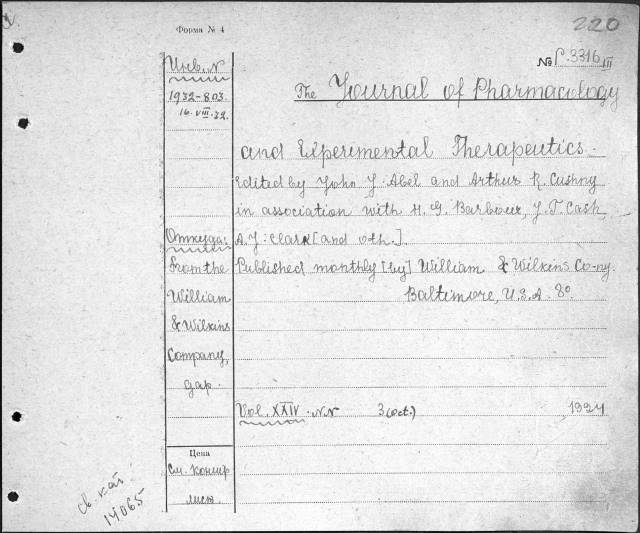 Форма № 4
220
№ Р.3316
III
Инв. №
1932-803.
16.VIII.32.
The Journal of Pharmacology
and Experimental Therapeutics.
Edited by John J. Abel and Arthur R. Cushny
in association with H. G. Barbour, J. T. Cash,
Откуда:
A. J. Clark [and oth.].
From the
William
& Wilkins
Company,
дар.
Published monthly [by] William & Wilkins Co-ny.
Baltimore, U.S.A. 8º
Vol. XXIV. NN 3 (oct.) 1924
Цена
См. контр
лист.
св. кат.
14065